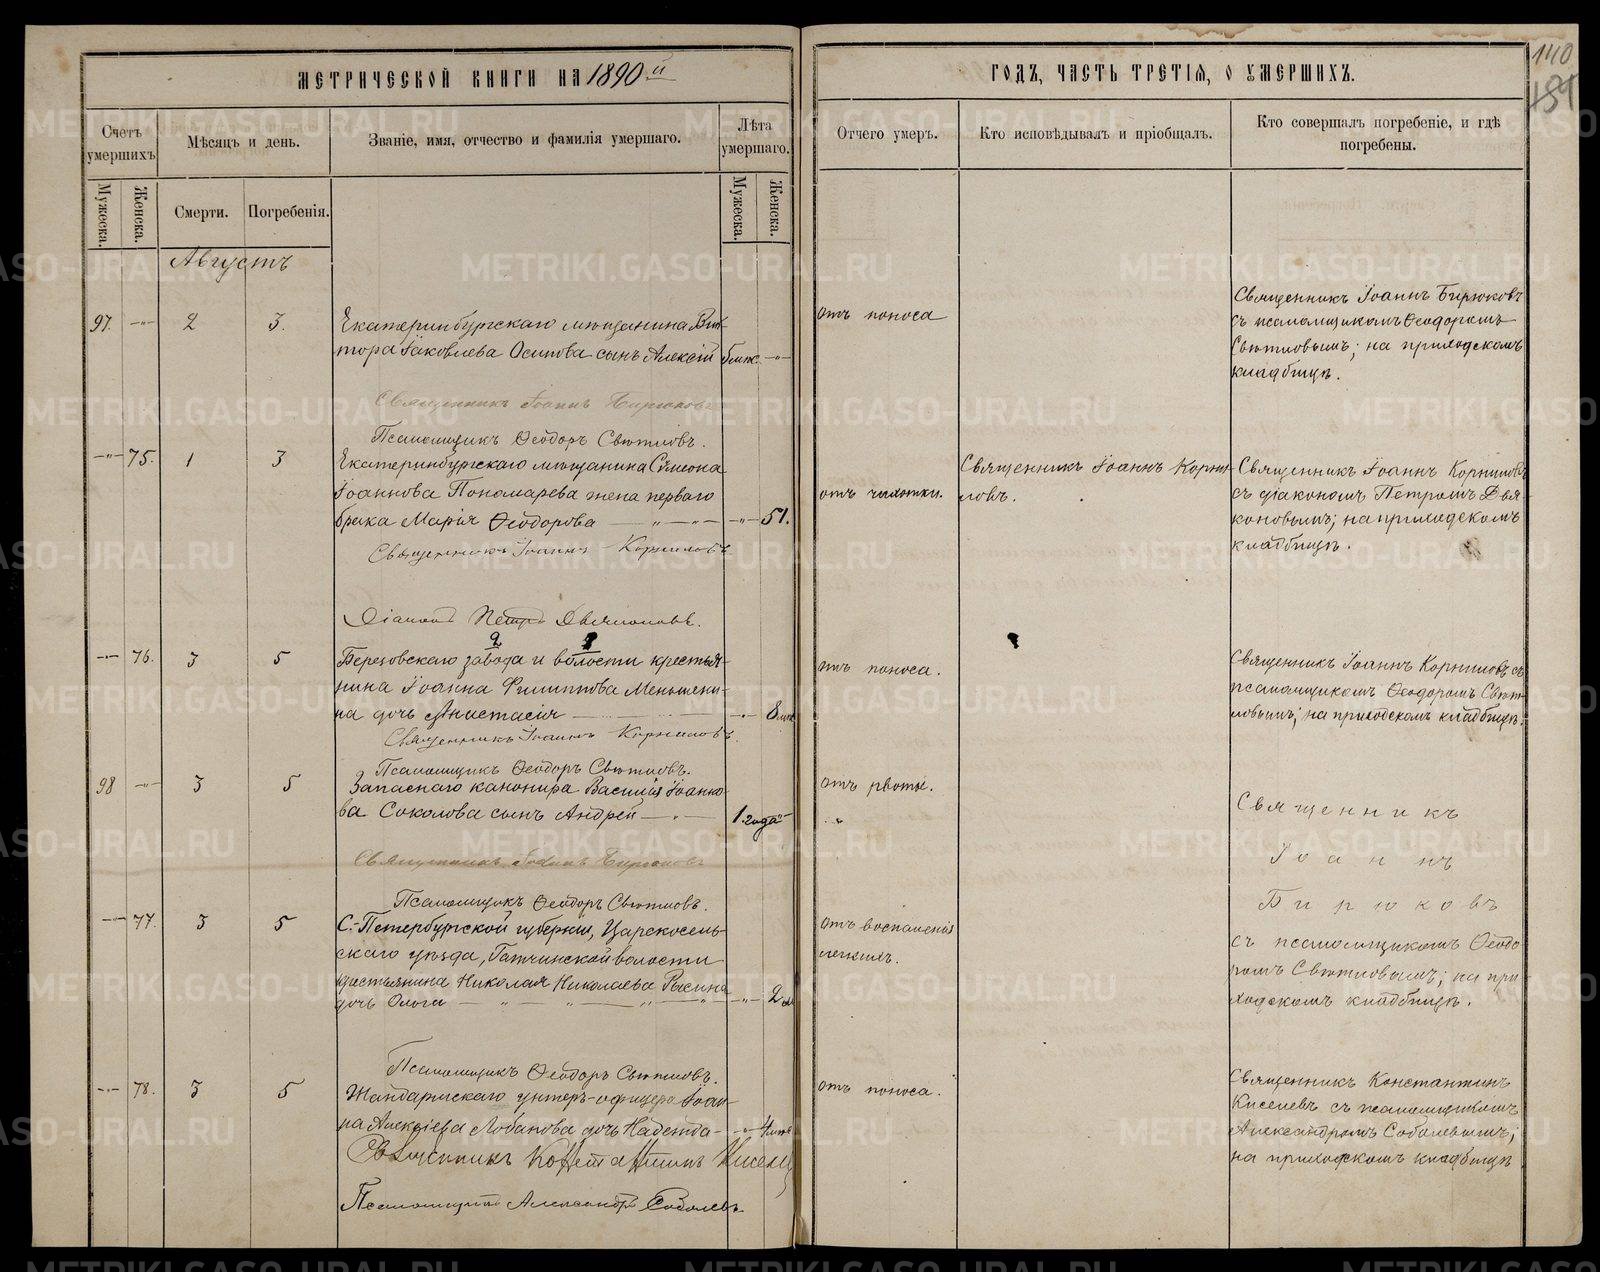 МЕТРИЧЕСКОЙ КНИГИ НА 1890й
ГОДЪ, ЧАСТЬ ТРЕТІЯ, О УМЕРШИХЪ.
140
Счетъ умершихъ.
Мѣсяцъ и день.
Званіе, имя, отчество и фамилія умершаго.
Лѣта умершаго.
Отчего умеръ.
Кто исповѣдывалъ и пріобщалъ.
Кто совершалъ погребеніе, и гдѣ погребены.
Мужеска.
Женска.
Смерти.
Погребенія.
Мужеска.
Женска.
Августъ
97. -"- 2 3.
Екатеринбургскаго мѣщанина Вик-
тора Іаковлева Осипова сынъ Алексій -"-
отъ поноса
Священникъ Іоаннъ Бирюковъ
съ псаломщикомъ Ѳеодоромъ
Свѣтловымъ; на приходскомъ
кладбищѣ.
Священникъ Іоаннъ Бирюковъ
Псаломщикъ Ѳеодоръ Свѣтловъ.
-"- 75. 1 3
Екатеринбургскаго мѣщанина Сѵмеона
Іоаннова Пономарева жена перваго
брака Марія Ѳеодорова -"- -"- 51.
отъ чахотки.
Священникъ Іоаннъ Корни-
ловъ.
Священникъ Іоаннъ Корниловъ
съ діакономъ Петромъ Дья-
коновымъ; на приходскомъ
кладбищѣ.
Священникъ Іоаннъ Корниловъ.
Діаконъ Петръ Дьяконовъ.
2 1
-"- 76. 3 5
Березовскаго завода и волости крестья-
нина Іоанна Филиппова Меньшени-
на дочь Анастасія -"-
отъ поноса.
Священникъ Іоаннъ Корниловъ съ
псаломщикомъ Ѳеодоромъ Свѣт-
ловымъ; на приходскомъ кладбищѣ.
Священникъ Іоаннъ Корниловъ.
Псаломщикъ Ѳеодоръ Свѣтловъ.
98 -"- 3 5
Запаснаго канонира Василія Іоанно-
ва Соколова сынъ Андрей -"- 1. года
отъ рвоты.
Священникъ
Іоаннъ
Бирюковъ
съ псаломщикомъ Ѳеодо-
ромъ Свѣтловымъ; на при-
ходскомъ кладбищѣ.
Священникъ Іоаннъ Бирюковъ
Псаломщикъ Ѳеодоръ Свѣтловъ.
-"- 77. 3 5
С.-Петербургской губерніи, Царскосель-
скаго уѣзда, Гатчинской волости
крестьянина Николая Николаева
дочь Ольга -"- -"- 2
отъ воспаленія
легкихъ.
Псаломщикъ Ѳеодоръ Свѣтловъ.
-"- 78. 3 5
Жандармскаго унтеръ-офицера Іоан-
на Алексіева Лобанова дочь Надежда -
отъ поноса.
Священникъ Константинъ
Киселевъ съ псаломщикомъ
Александромъ Соболевымъ;
на приходскомъ кладбищѣ
Священникъ Константинъ Киселев
Псаломщикъ Александръ Соболевъ
METRIKI.GASO-URAL.RU